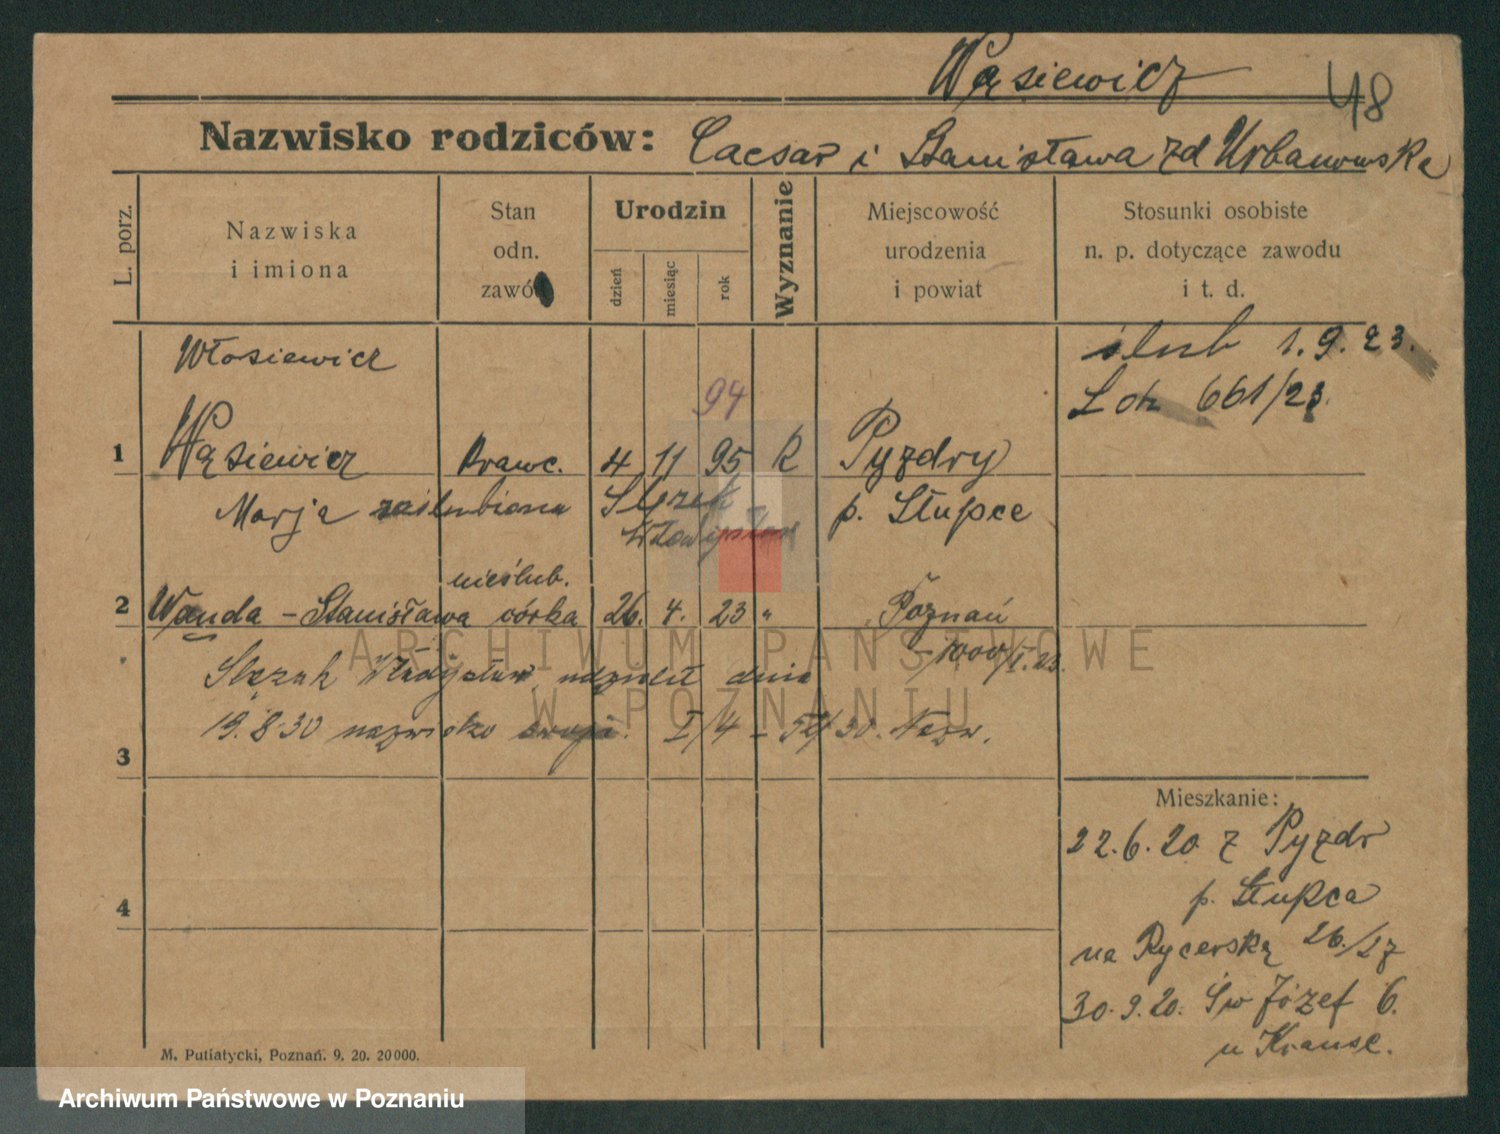 Wąsiewicz
48
Nazwisko rodziców: Caesar i Stanisława zd Urbanowska
L. porz.
Nazwiska
i imiona
Stan
odn.
zawód
Urodzin
dzień
miesiąc
rok
Wyznanie
Miejscowość
urodzenia
i powiat
Stosunki osobiste
n. p. dotyczące zawodu
i t. d.
Włosiewicz
ślub 1.9.23.
661/23.
94
1 Wąsiewicz Prawc. 4 11 95 R Pyzdry
Marja zaślubiona Ślęzak p. Słupce
Władysław
nieślub.
2 Wanda - Stanisława córka 26. 4. 23 " Poznań
1000/I.23.
Ślęzak Władysław udzielił dnia
19.8.30 nazwisko swoje. I/4 - 30. Nazw.
3
Mieszkanie:
22.6.20 z Pyzdr
p. Słupca
4
na Rycerską 26/27
30.9.20. Św Józef 6.
u Krause.
M. Putiatycki, Poznań. 9. 20. 20000.
ARCHIWUM PAŃSTWOWE
W POZNANIU
Archiwum Państwowe w Poznaniu